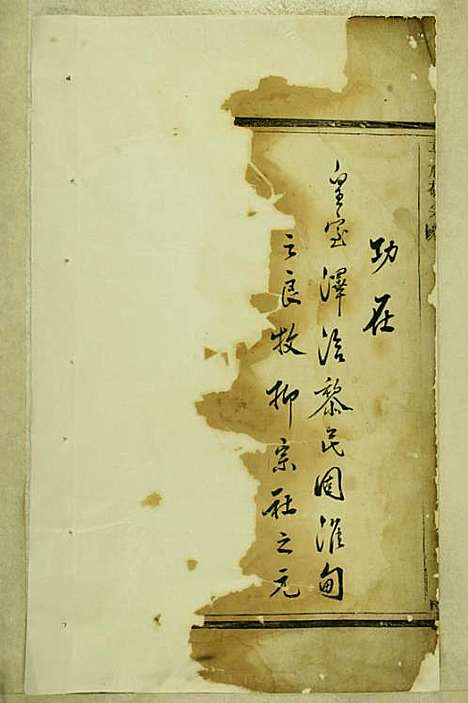 功在
皇室澤洽黎民固淮甸
之良牧抑宗社之元